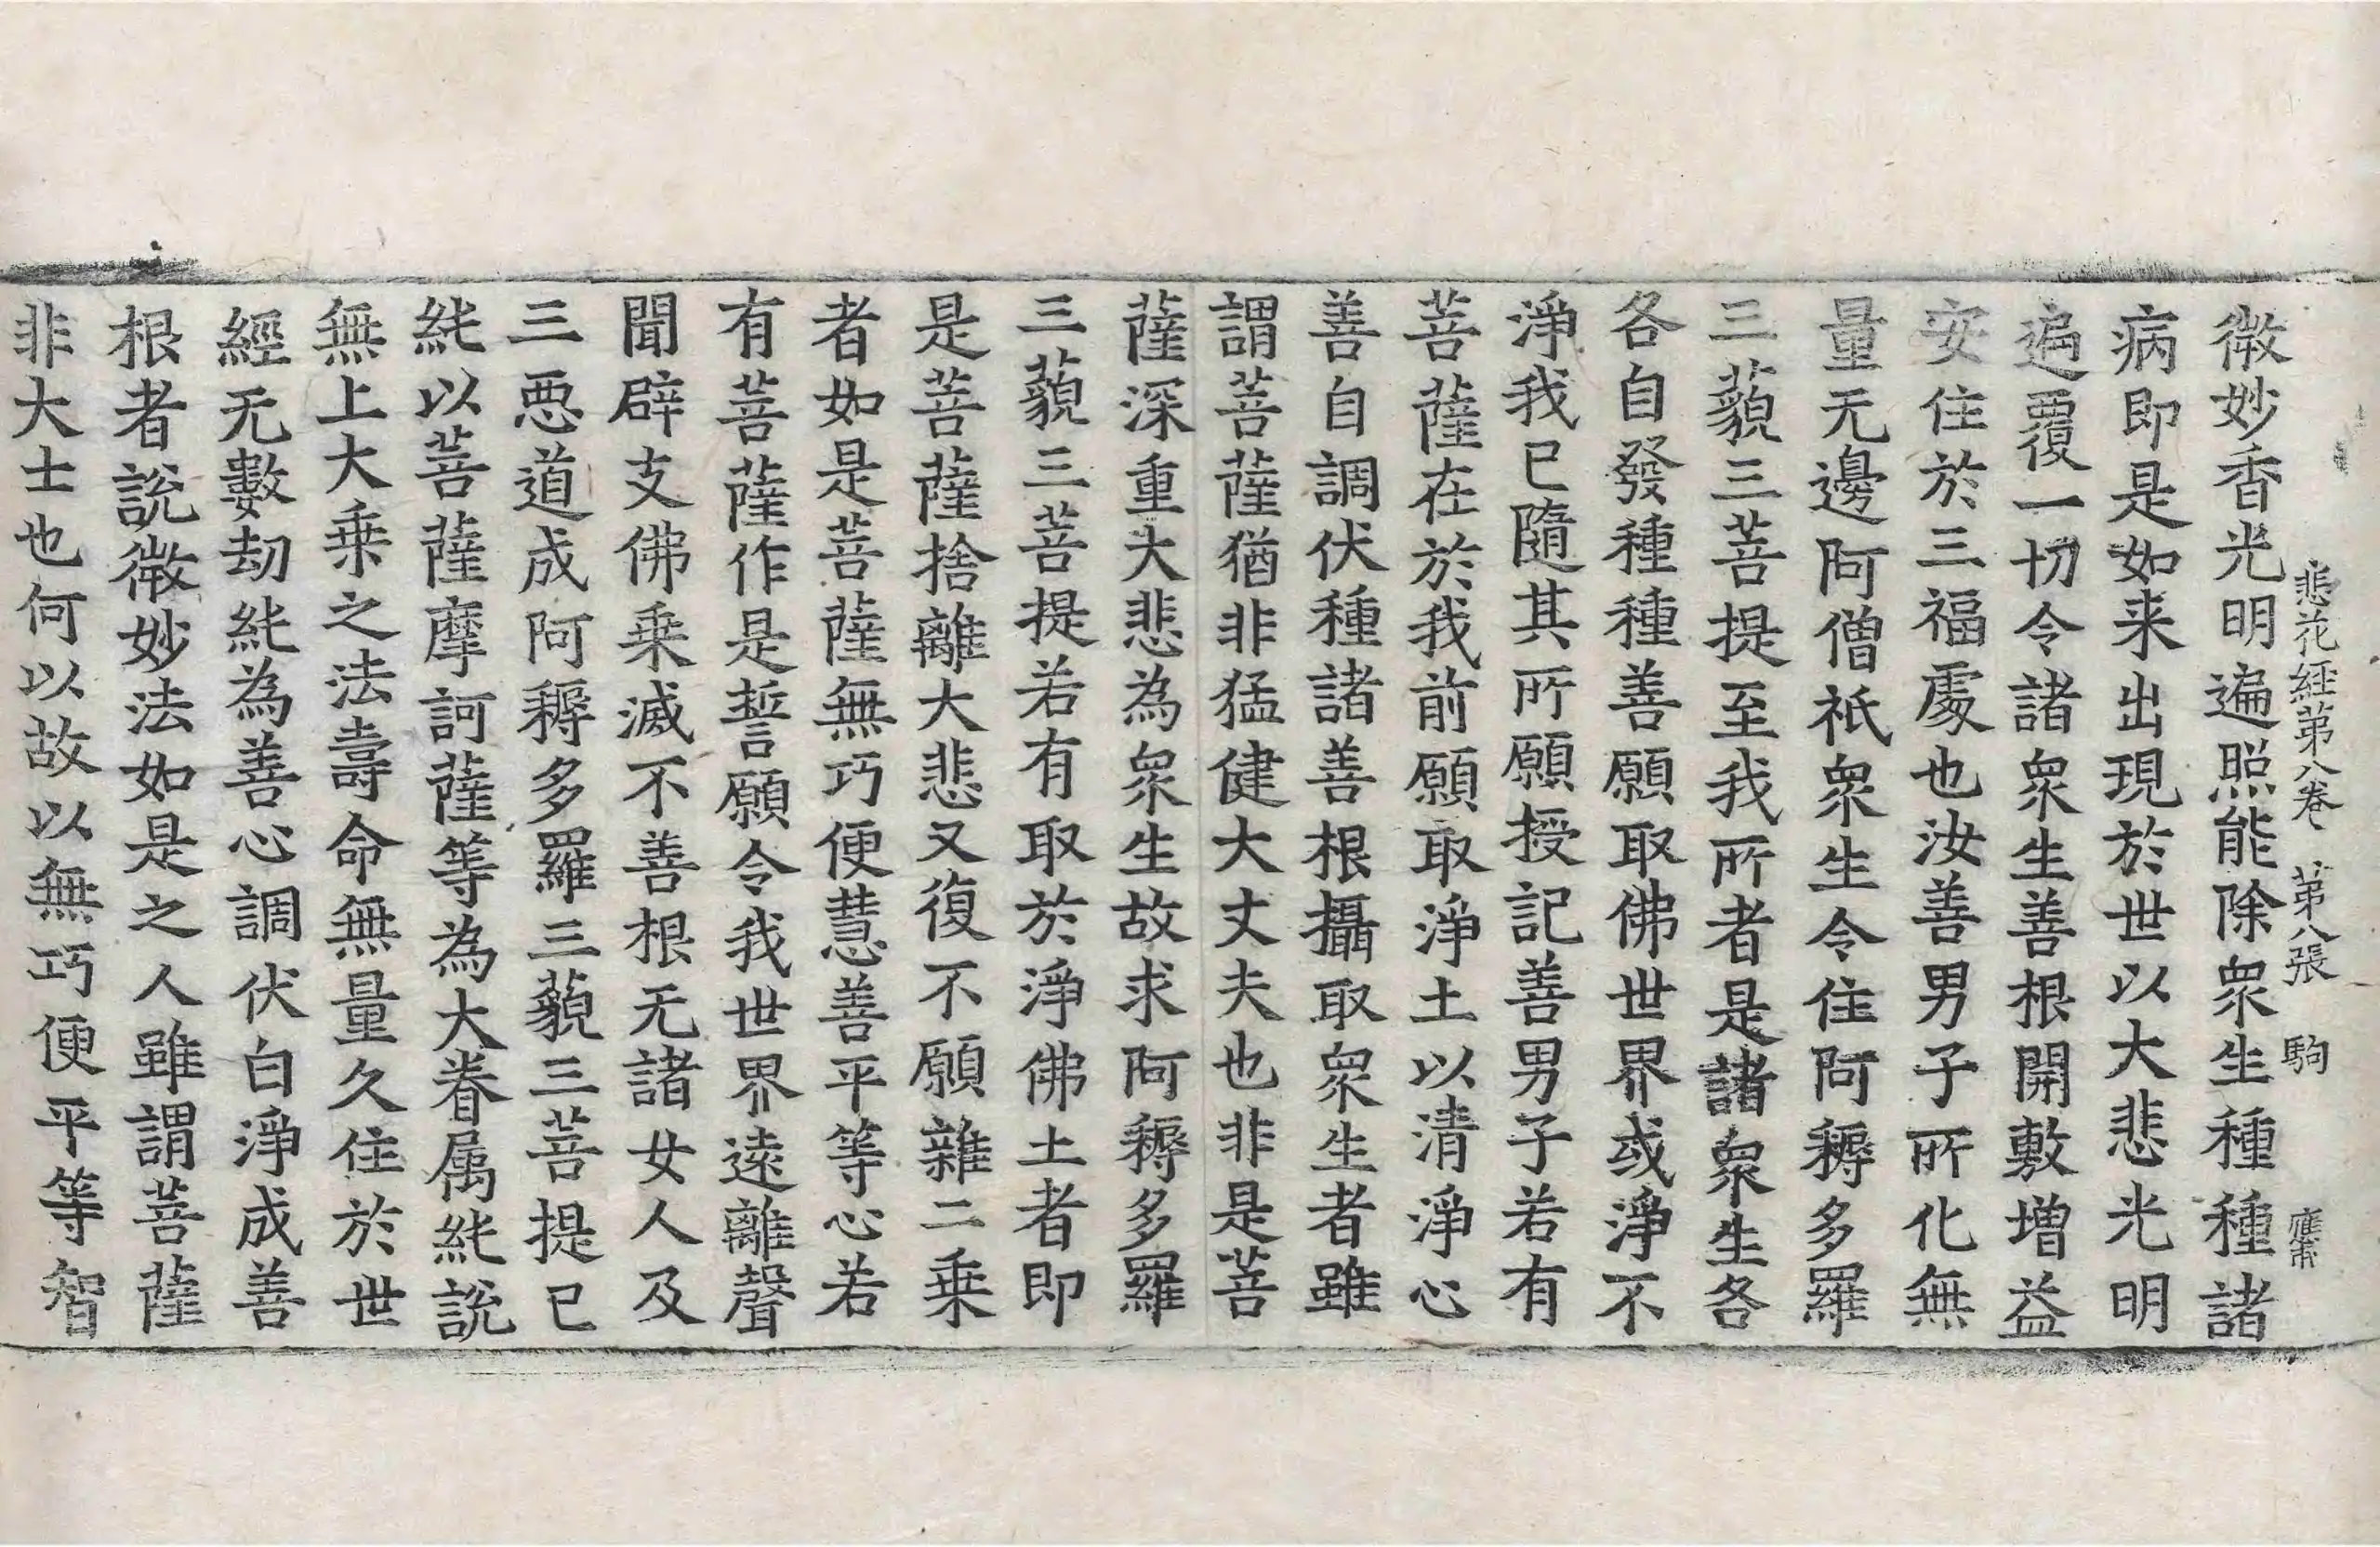 悲花經第八卷 第八張 駒
微妙香光明遍照能除衆生種種諸
病即是如来出現於世以大悲光明
遍覆一切令諸衆生善根開敷增益
安住於三福處也汝善男子所化無
量无邊阿僧祇衆生令住阿耨多羅
三藐三菩提至我所者是諸衆生各
各自發種種善願取佛世界或淨不
淨我已隨其所願授記善男子若有
菩薩在於我前願取淨土以清淨心
善自調伏種諸善根攝取衆生者雖
謂菩薩猶非猛健大丈夫也非是菩
薩深重大悲為衆生故求阿耨多羅
三藐三菩提若有取於淨佛土者即
是菩薩捨離大悲又復不願離二乗
者如是菩薩無巧便慧善平等心若
有菩薩作是誓願令我世界遠離聲
聞辟支佛乗滅不善根无諸女人及
三悪道成阿耨多羅三藐三菩提已
純以菩薩摩訶薩等為大眷属純說
無上大乗之法壽命無量久住於世
經无數劫純為善心調伏白淨成善
根者說微妙法如是之人雖謂菩薩
非大士也何以故以無巧便平等智